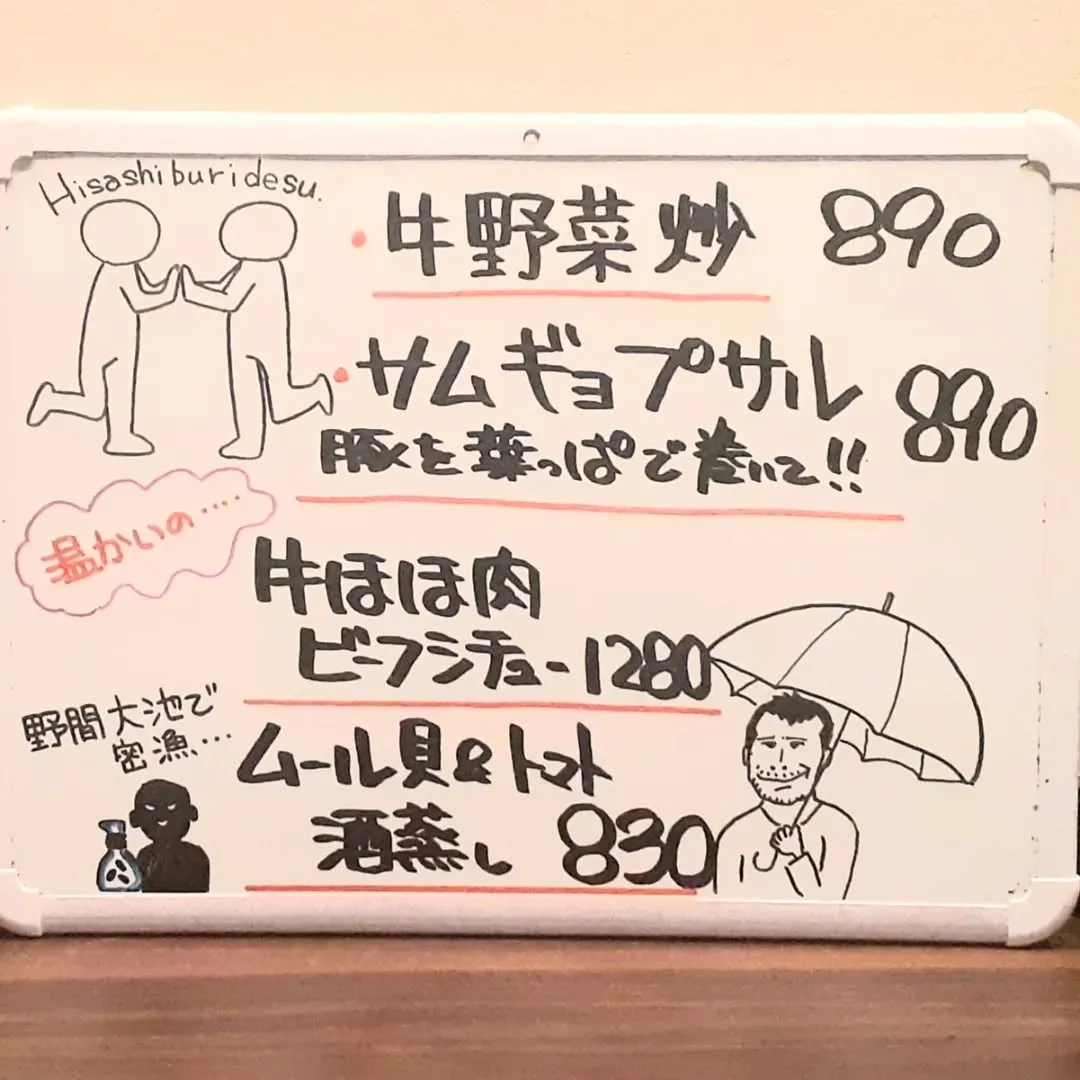 Hisashiburidesu.
・牛野菜炒 890
・サムギョプサル 890
豚を葉っぱで巻いて!!
温かいの....
牛ほほ肉
ビーフシチュー 1280
野間大池で
密漁...
ムール貝&トマト
酒蒸し 830